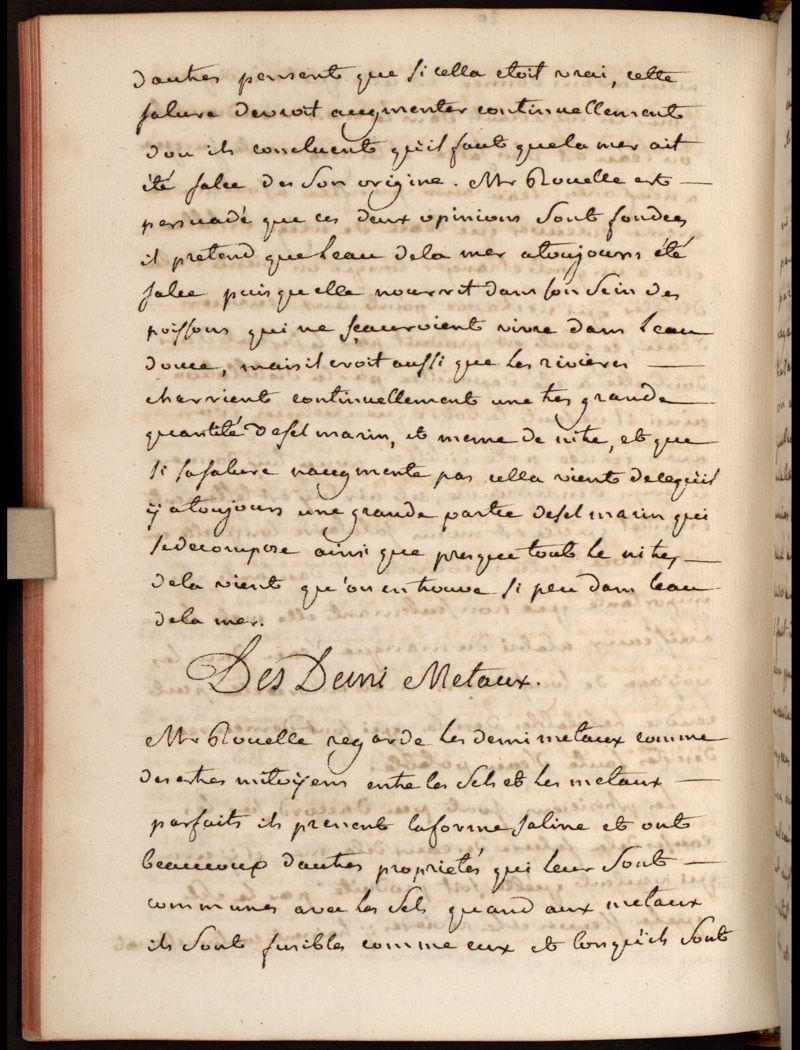 d'autres pensent que si cella etoit vrai, cette
salure devroit augmenter continuellement
dou ils concluent qu'il faut quela mer ait
été salée des son origine. Mr Rouelle est
persuadé que ces deux opinions sont fondées
il pretend que leau dela mer atoujours été
salée puis quelle nourrit dans son sein des
poissons qui ne sçauroient vivre dans leau
douce, mais il croit aussi que les rivieres
charrient continuellement une tres grande
quantité desel marin, et meme de nitre, et que
si sasalure naugmente pas cella vient delequil
y atoujours une grande partie desel marin qui
sedecompose ainsi que presque tout le nitre,
dela vient qu'on en trouve si peu dans leau
dela mer.
Des Demi Metaux.
Mr Rouelle regarde les demi metaux comme
des etres mitoÿens entre les sels et les metaux
parfaits ils prenent laforme saline et ont
beaucoup d'autres proprietés qui leur sont
communes avec les sels quand aux metaux
ils sont fusibles comme eux et lorsqu'ils sont